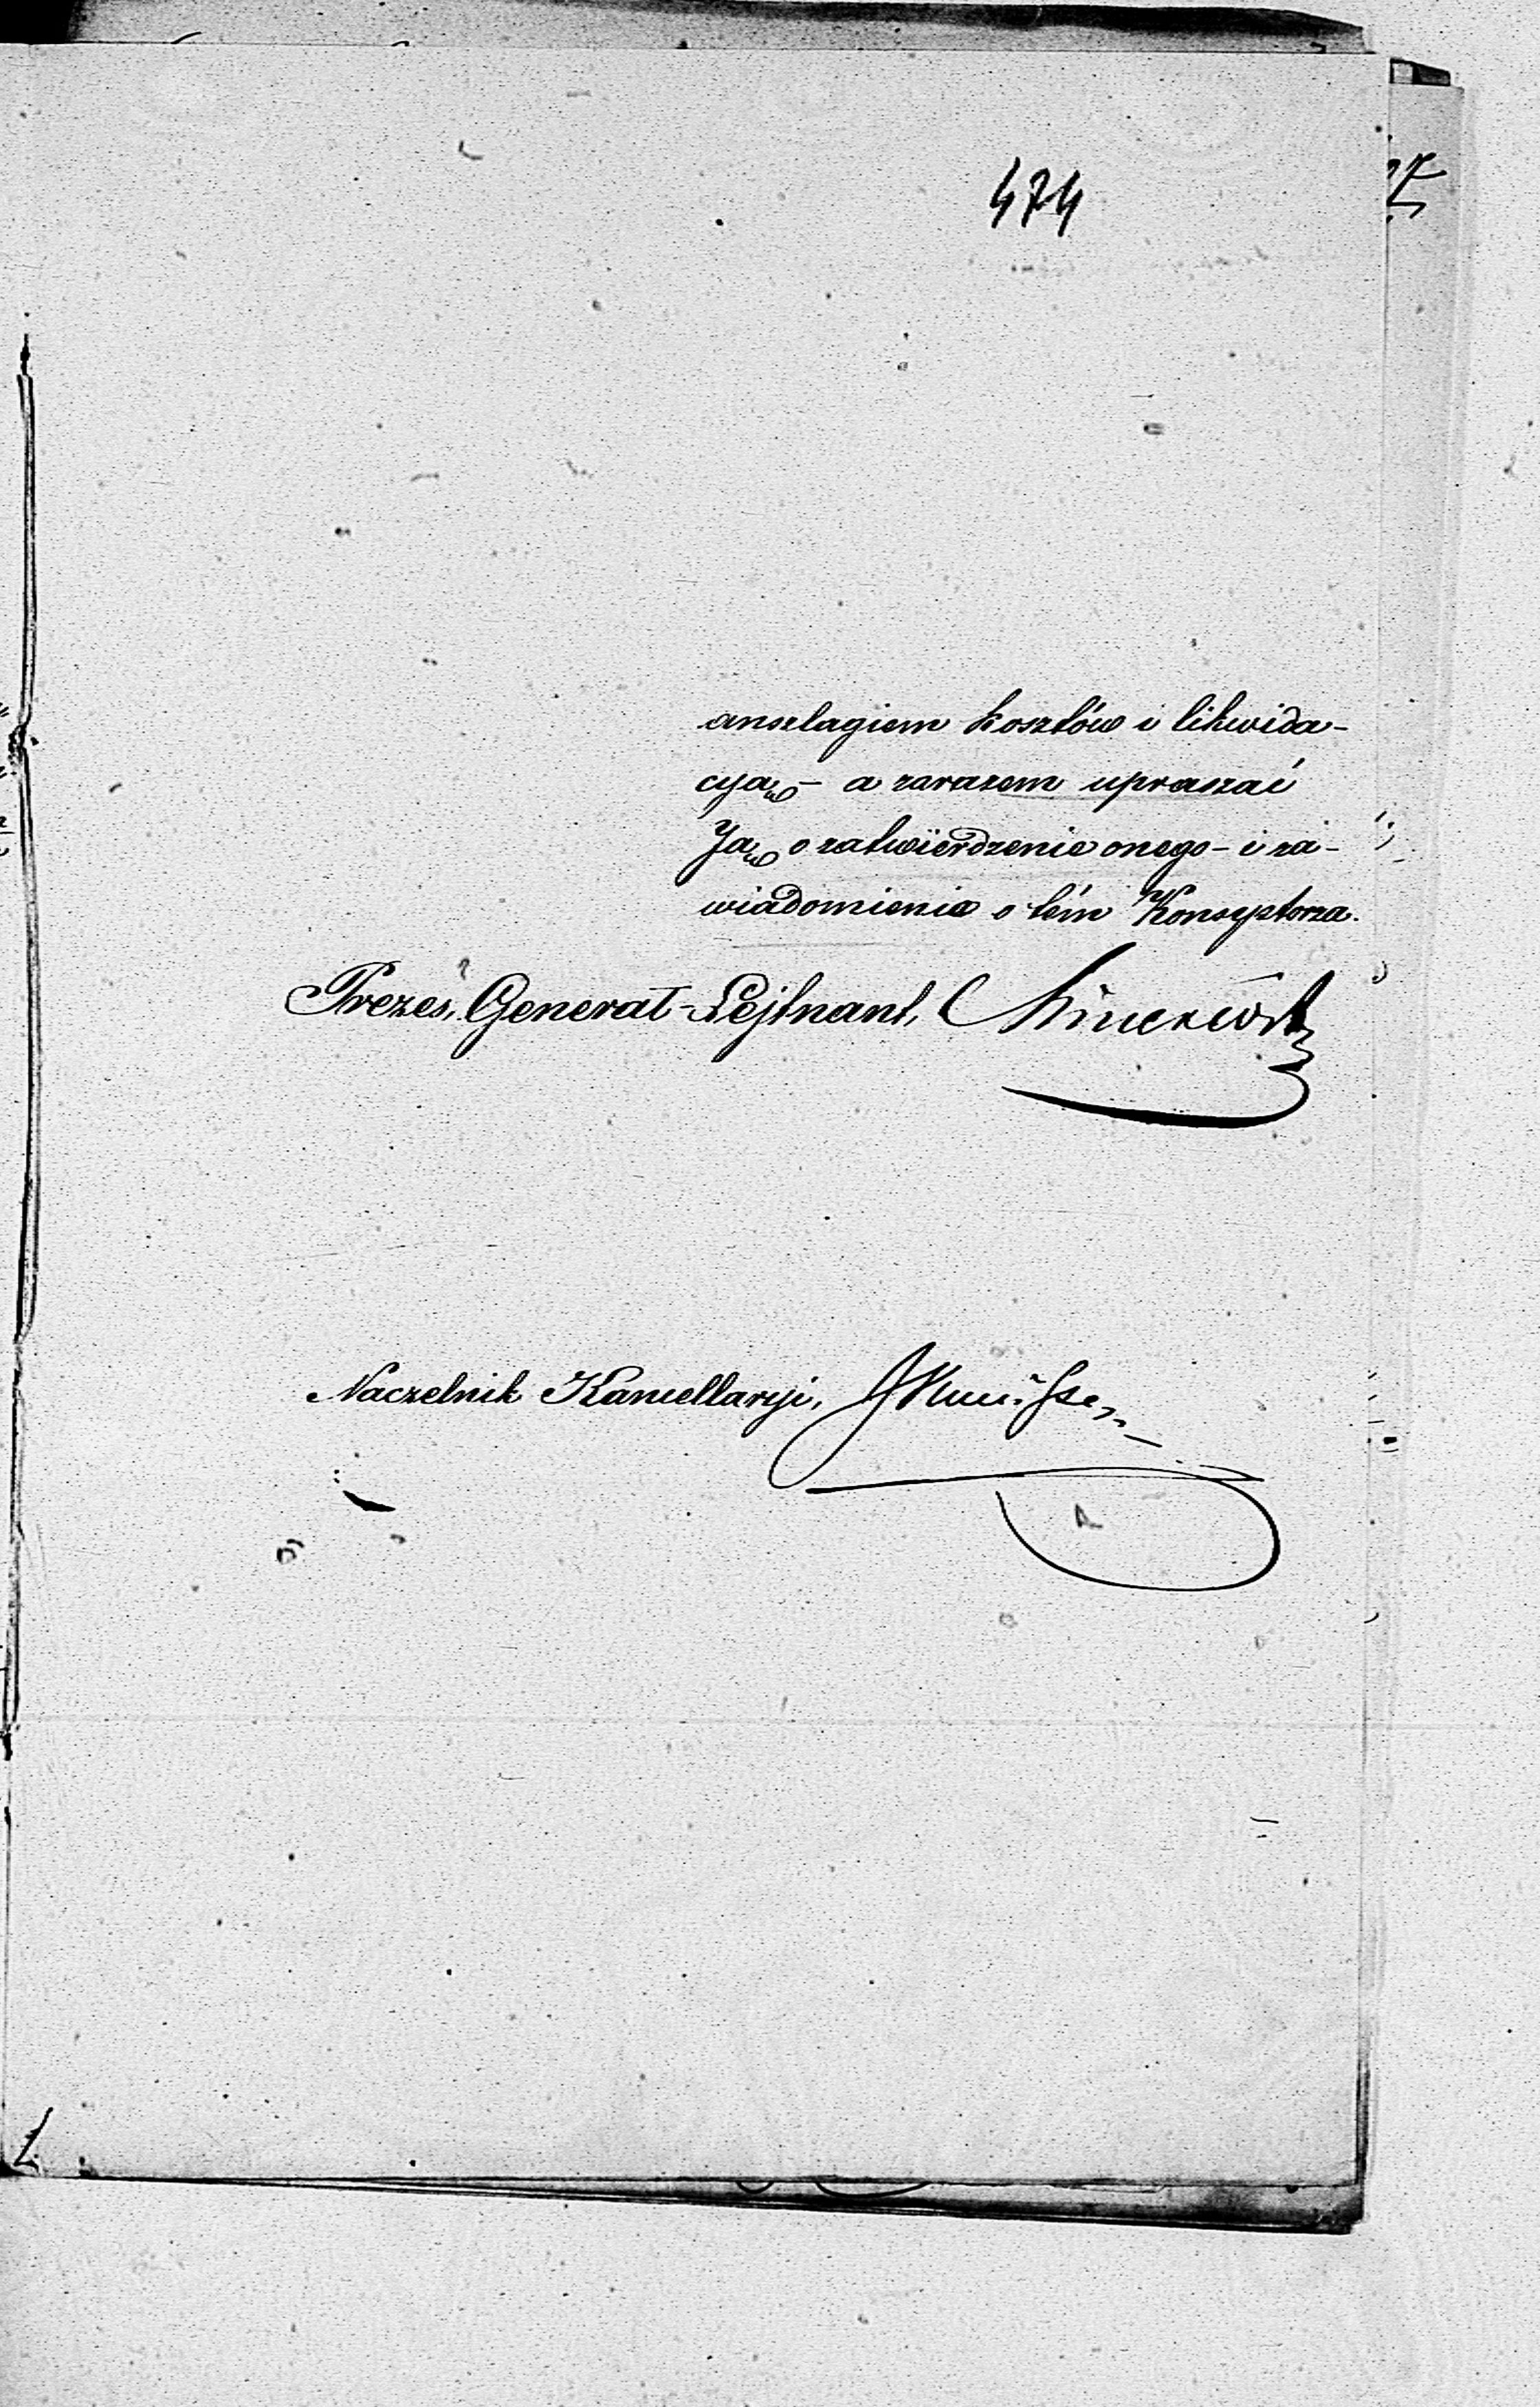 474
anszlagiem kosztów i likwida-
cyą - a zarazem upraszać
Ją o zatwierdzenie onego - i za-
wiadomienie o tém Konsystorza.
Prezes, Generał-Lejtnant,
Naczelnik Kancellaryi,